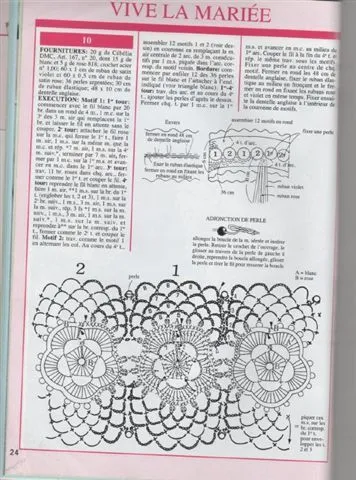 VIVE LA MARIÉE
10
FOURNITURES: 20 g de Cébélia
DMC, Art. 167, n° 20, dont 15 g de
blanc et 5 g de rose 818; crochet acier
n° 1,00; 60 x 1 cm de ruban de satin
violet et 60 x 0,5 cm de ruban de
satin rose; 36 perles argentées; 30 cm
de ruban élastique; 48 x 10 cm de
dentelle anglaise.
EXÉCUTION: Motif 1: 1er tour:
commencer avec le fil blanc par 20
br. dans un rond de 4 m., 1 m.c. sur la
3e des 3 m. air qui remplacent la 1e
br. et laisser le fil en attente sans le
couper. 2e tour: attacher le fil rose
sur la m.c. qui ferme le 1er t., faire 1
m. air, 1 m.s. sur la même m. que la
m.c. et rép. *7 m. air, 1 m.s. sur la 4e
m. suiv.*, terminer par 7 m. air, fer-
mer par 1 m.c. sur la 1e m.s. et avan-
cer en m.c. dans le 1er arc. 3e tour:
trav. 11 br. roses dans chq. arc., fer-
mer comme le 1er t. et couper le fil. 4e
tour: reprendre le fil blanc en attente,
faire 1 m. air, **1 m.s. sur la br. du 1er
t. (englober les t. 2 et 3), 1 m.s. sur la
t., fermer comme le 2e t. et couper le
fil. Motif 2: trav. comme le motif 1
en alternant les col. Au cours du 4e t.,
assembler 12 motifs 1 et 2 (voir des-
sin) en couronne en remplaçant la m.
air centrale de 2 arc. de 3 m. consécu-
tifs par 1 m.s. piquée dans l'arc. cor-
resp. du motif voisin. Bordure: com-
mencer par enfiler 12 des 36 perles
sur le fil blanc et l'attacher à l'end.
indiqué (voir triangle blanc). 1er-4e
tour: trav. des arc. et au cours du 4e
t. ajouter les perles d'après le dessin.
Fermer chq. t. par 1 m.c. sur la 1e
m.s. et avancer en m.c. au milieu du
1er arc. Couper le fil à la fin du 4e t. et
rép. le même trav. sous les motifs.
Fixer une perle au centre de chq.
motif. Fermer en rond les 48 cm de
dentelle anglaise, fixer le ruban élas-
tique au milieu en fronçant et le fer-
mer en rond en fixant les rubans rose
et violet en même temps. Fixer ensui-
te la dentelle anglaise à l'intérieur de
la couronne de motifs.
Envers
fermer en rond 48 cm
de dentelle anglaise
fixer le ruban élastique
fermer en rond en fixant les
rubans au milieu
assembler 12 motifs en rond
fixer une perle
4 t. d'arc.
1 2 1 2
36 cm
4 t. d'arc.
ruban violet
ruban rose
ADJONCTION DE PERLE
allonger la boucle de la m. serrée et insérer
la perle. Retirer le crochet de l'ouvrage, le
glisser au travers de la perle de gauche à
droite, reprendre la boucle allongée, glisser
la perle et tirer le fil pour resserrer la boucle
A = blanc
B = rose
2 1
piquer ces
m.s. sur les
br. corresp.
du 1er t.
pour enve-
lopper les t.
2 et 3
24